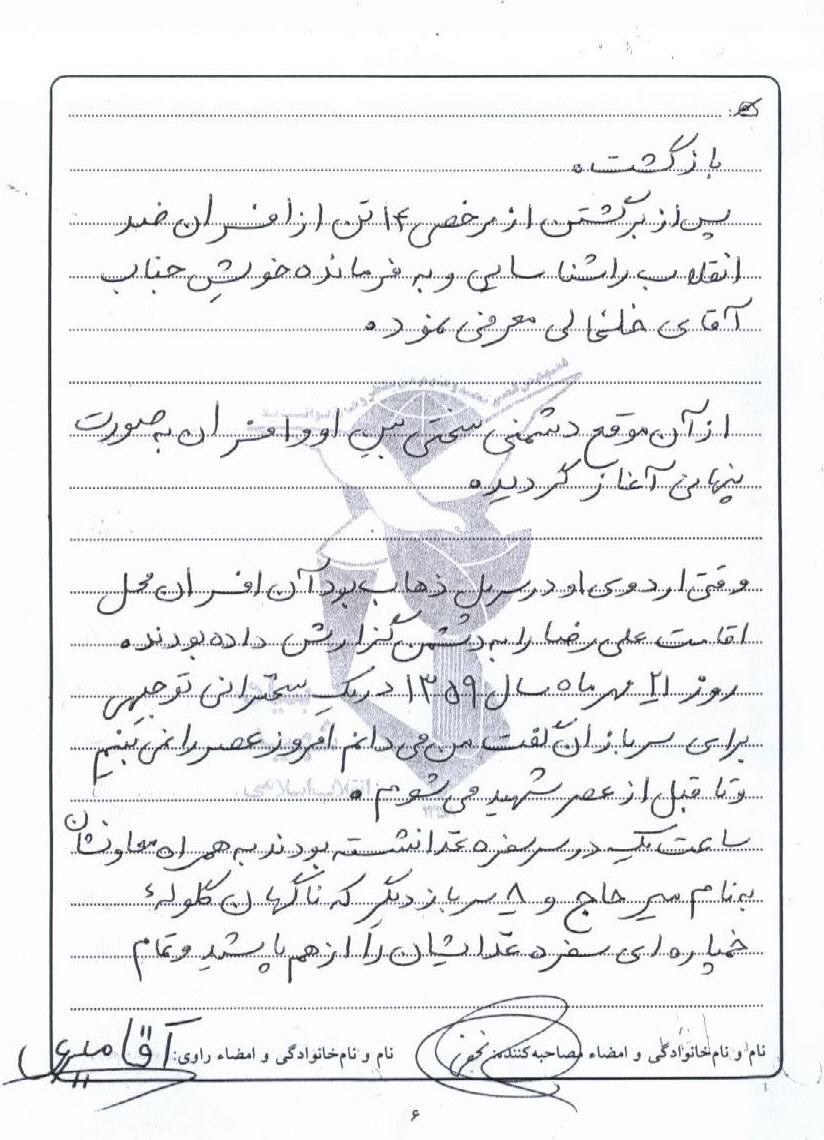 بازگشت.
پس از برگشتن از مرخصی ۱۴ تن از افسران ضد
انقلاب را شناسایی و به فرمانده خویش جناب
آقای خلخالی معرفی نمود.
از آن موقع دشمنی سختی بین او و افسران به صورت
پنهانی آغاز گردید.
وقتی اردوی او در سرپل ذهاب بود آن افسران محل
اقامت علی رضا را به دشمن گزارش داده بودند.
روز ۲۱ مهر ماه سال ۱۳۵۹ در یک سخنرانی توجیهی
برای سربازان گفت من می دانم امروز عصر را نمی بینم
و تا قبل از عصر شهید می شوم.
ساعت یک در سر سفره غذا نشسته بودند به همراه معاونشان
به نام میر حاج و ۸ سرباز دیگر که ناگهان گلولهٔ
خمپاره ای سفره غذایشان را از هم پاشید و تمام
نام و نام‌خانوادگی و امضاء مصاحبه‌کننده: نجفی نام و نام‌خانوادگی و امضاء راوی:
انقلاب اسلامی
۶